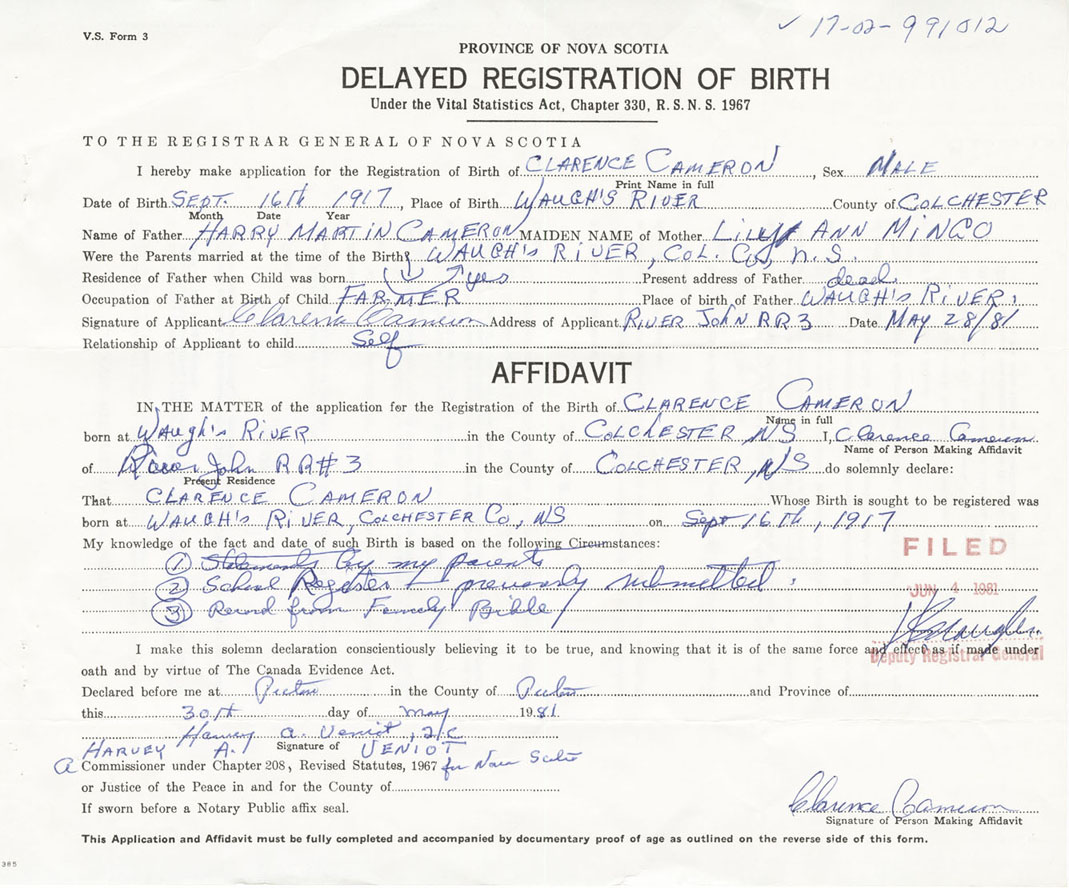 ✓ 17-02-991012
V.S. Form 3
PROVINCE OF NOVA SCOTIA
DELAYED REGISTRATION OF BIRTH
Under the Vital Statistics Act, Chapter 330, R.S.N.S. 1967
TO THE REGISTRAR GENERAL OF NOVA SCOTIA
I hereby make application for the Registration of Birth of CLARENCE CAMERON, Sex MALE
Print Name in full
Date of Birth SEPT. 16th 1917, Place of Birth WAUGH'S RIVER County of COLCHESTER
Month Date Year
Name of Father HARRY MARTIN CAMERON MAIDEN NAME of Mother LILLY ANN MINGO
Were the Parents married at the time of the Birth? WAUGH'S RIVER, COL. Co, N.S.
Residence of Father when Child was born yes Present address of Father dead
Occupation of Father at Birth of Child FARMER Place of birth of Father WAUGH'S RIVER,
Signature of Applicant Clarence Cameron Address of Applicant RIVER JOHN RR3 Date MAY 28/81
Relationship of Applicant to child Self
AFFIDAVIT
IN THE MATTER of the application for the Registration of the Birth of CLARENCE CAMERON
Name in full
born at Waugh's RIVER in the County of COLCHESTER, NS I, Clarence Cameron
Name of Person Making Affidavit
of River John RR#3 in the County of COLCHESTER, N/S do solemnly declare:
Present Residence
That CLARENCE CAMERON Whose Birth is sought to be registered was
born at WAUGH'S RIVER, COLCHESTER Co, NS on Sept 16th, 1917
My knowledge of the fact and date of such Birth is based on the following Circumstances:
FILED
① Statements by my parents
② School Register - previously submitted.
JUN 4 1981
③ Record from Family Bible
I make this solemn declaration conscientiously believing it to be true, and knowing that it is of the same force and effect as if made under
Deputy Registrar General
oath and by virtue of The Canada Evidence Act.
Declared before me at Pictou in the County of Pictou and Province of
this 30th day of may 1981.
Harvey A. Veniot, J/C
HARVEY A. Signature of VENIOT
A Commissioner under Chapter 208, Revised Statutes, 1967 for Nova Scotia
or Justice of the Peace in and for the County of
If sworn before a Notary Public affix seal.
Clarence Cameron
Signature of Person Making Affidavit
This Application and Affidavit must be fully completed and accompanied by documentary proof of age as outlined on the reverse side of this form.
365